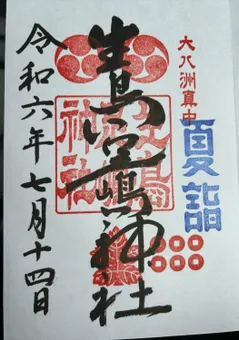 大八洲真中
夏詣
生島足嶋神社
生島
足嶋
神社
令和六年七月十四日